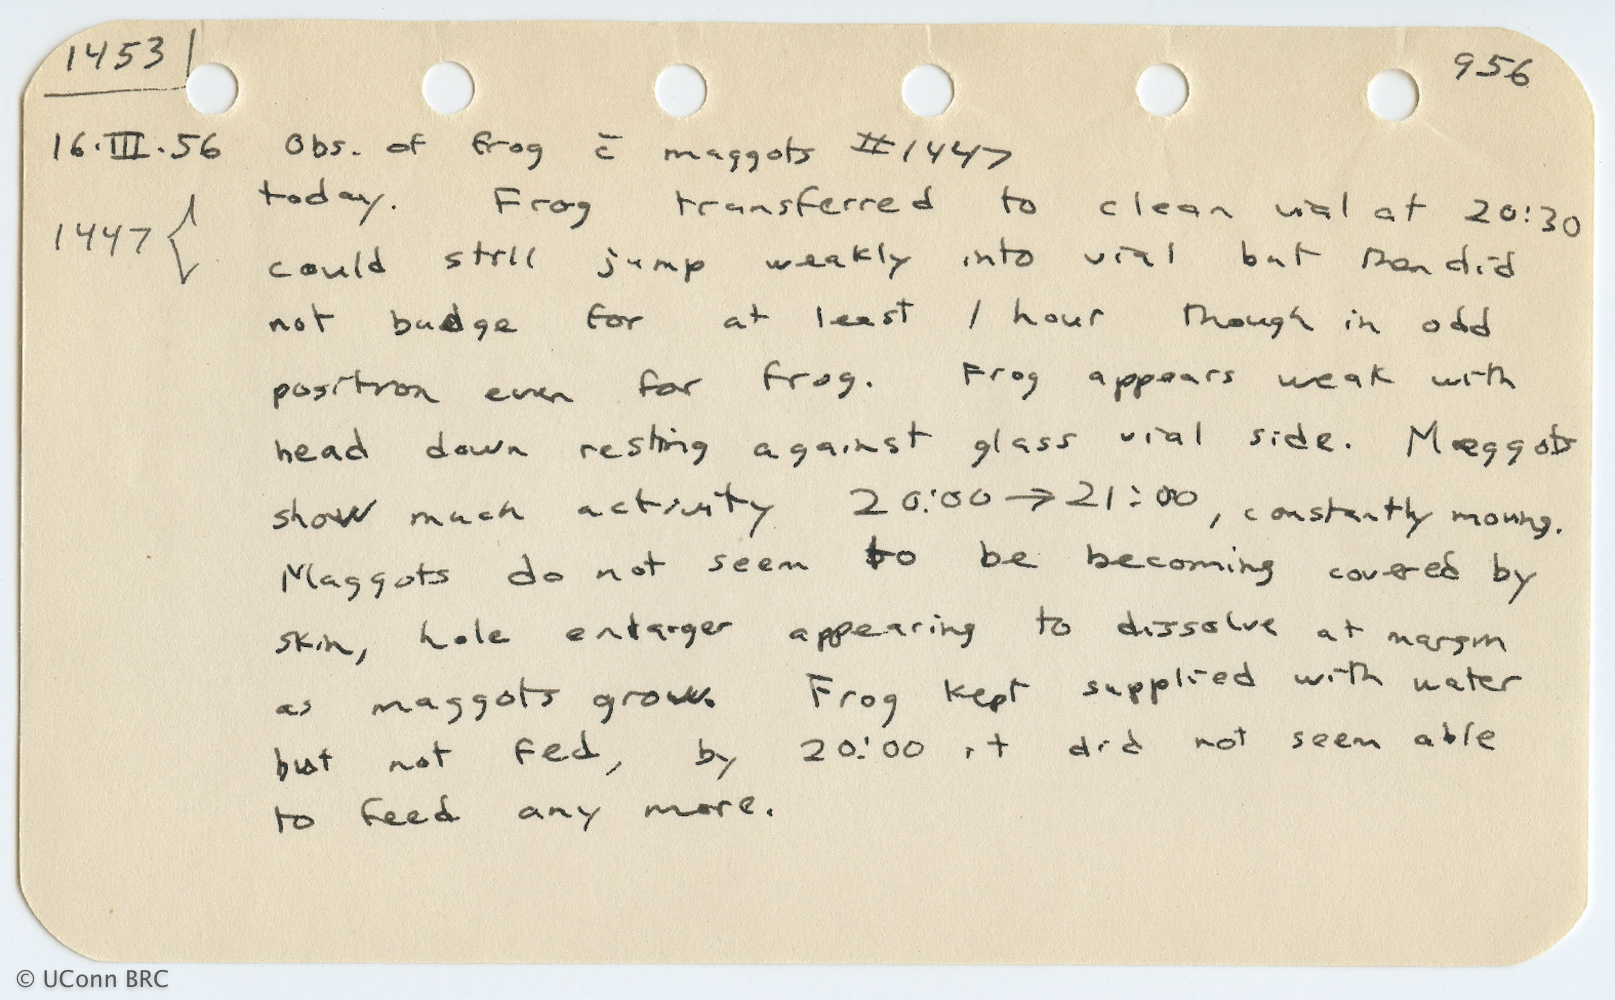 1453
956
16.III.56 Obs. of frog c̄ maggots #1447
today. Frog transferred to clean vial at 20:30
1447 {
could still jump weakly into vial but then did
not budge for at least 1 hour though in odd
position even for frog. Frog appears weak with
head down resting against glass vial side. Maggots
show much activity 20:00 → 21:00, constantly moving.
Maggots do not seem to be becoming covered by
skin, hole enlarger appearing to dissolve at margin
as maggots grow. Frog kept supplied with water
but not fed, by 20:00 it did not seem able
to feed any more.
© UConn BRC